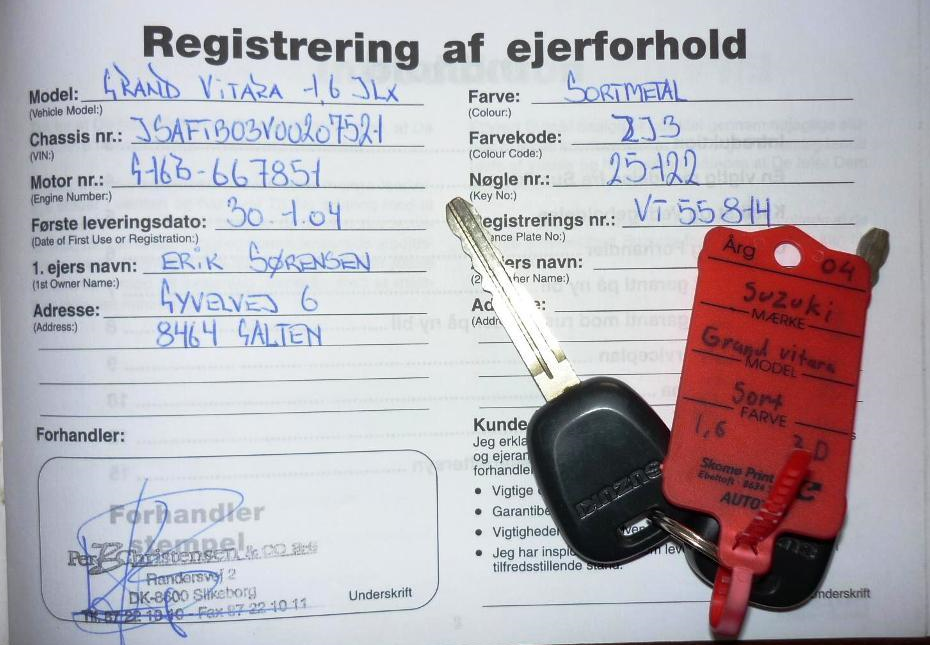 Registrering af ejerforhold
Model: GRAND VITARA 1,6 JLX
(Vehicle Model:)
Chassis nr.: JSAFTB03V00207521
(VIN:)
Motor nr.: G16B-667851
(Engine Number:)
Første leveringsdato: 30-1.04
(Date of First Use or Registration:)
1. ejers navn: ERIK SØRENSEN
(1st Owner Name:)
Adresse: GYVELVEJ 6
(Address:)
8464 GALTEN
Forhandler:
Forhandler
stempel
Per Christensen & CO
Randersvej 2
DK-8600 Silkeborg
Tlf. 87 22 10 10 - Fax 87 22 10 11
Underskrift
Farve: SORTMETAL
(Colour:)
Farvekode: ZJ3
(Colour Code:)
Nøgle nr.: 25122
(Key No:)
egistrerings nr.: VT 55814
ence Plate No:)
ejers navn:
her Name:)
Ad e:
(Addr
Kunde
Jeg erkla
og ejeran
forhandler
• Vigtige
• Garantibe
• Vigtighede
• Jeg har inspi m lev
tilfredsstillende stand.
nderskrift
SUZUKI
Årg 04
Suzuki
MÆRKE
Grand vitara
MODEL
Sort
FARVE
1,6 2D
Skomo Print
Ebeltoft - 8634
AUTO